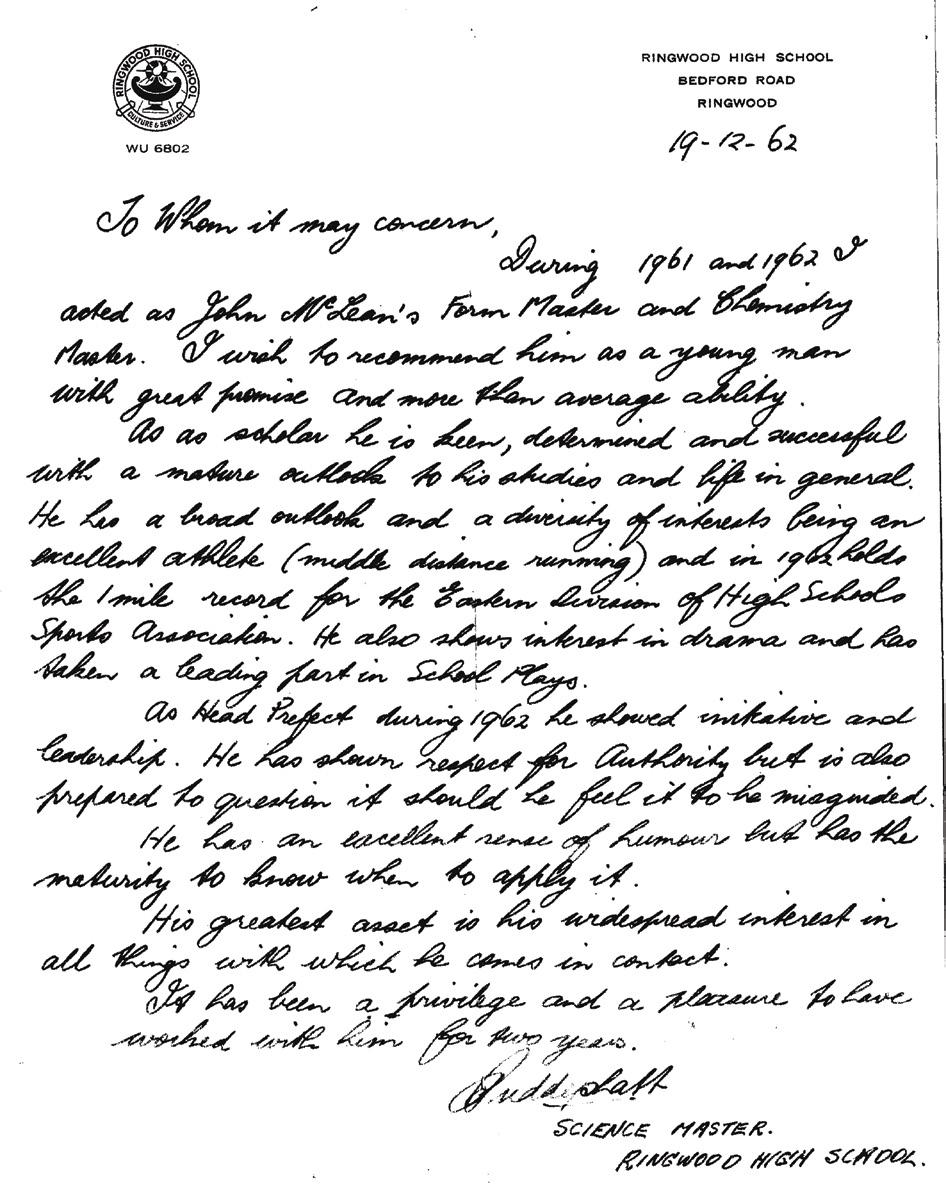 RINGWOOD HIGH SCHOOL
CULTURE & SERVICE
WU 6802
RINGWOOD HIGH SCHOOL
BEDFORD ROAD
RINGWOOD
19-12-62
To Whom it may concern,
During 1961 and 1962 I
acted as John McLean's Form Master and Chemistry
Master. I wish to recommend him as a young man
with great promise and more than average ability.
As as scholar he is keen, determined and successful
with a mature outlook to his studies and life in general.
He has a broad outlook and a diversity of interests being an
excellent athlete (middle distance running) and in 1962 holds
the 1 mile record for the Eastern Division of High Schools
Sports Association. He also shows interest in drama and has
taken a leading part in School Plays.
As Head Prefect during 1962 he showed initiative and
leadership. He has shown respect for Authority but is also
prepared to question it should he feel it to be misguided.
He has an excellent sense of humour but has the
maturity to know when to apply it.
His greatest asset is his widespread interest in
all things with which he comes in contact.
It has been a privilege and a pleasure to have
worked with him for two years.
SCIENCE MASTER.
RINGWOOD HIGH SCHOOL.